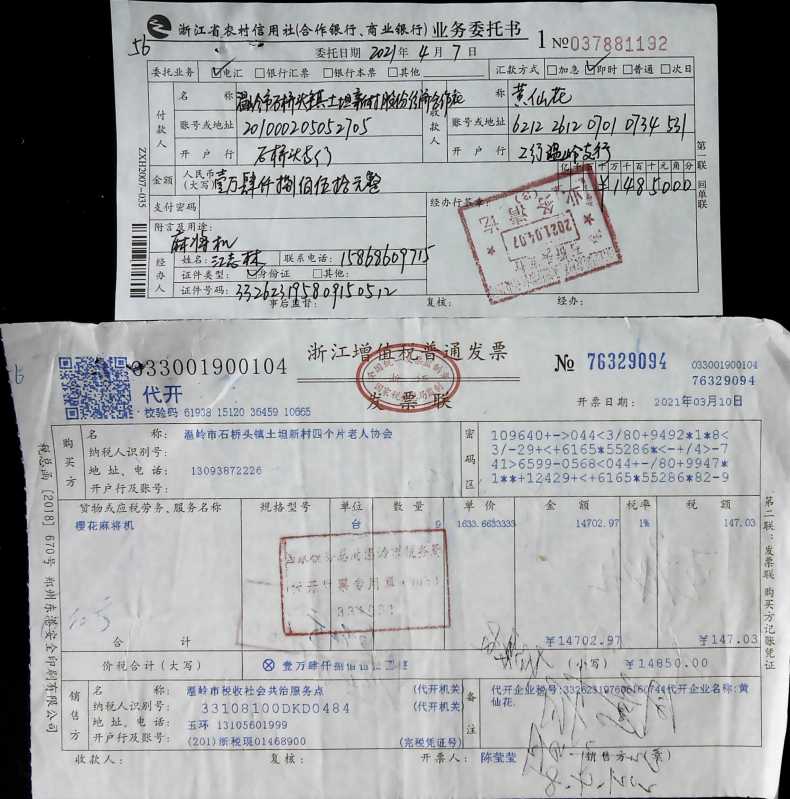 浙江省农村信用社(合作银行、商业银行) 业务委托书 1 №037881192
56
委托日期 2021年 4月 7日
委托业务 ☑电汇 □银行汇票 □银行本票 □其他 汇款方式 □加急 ☑即时 □普通 □次日
付款人 名称 温岭市石桥头镇土坦新村股份经济合作社 收款人 名称 黄仙花
账号或地址 201000205052705 账号或地址 6212 2612 0701 0734 531
开户行 石桥头支行 开户行 工行温岭支行
金额 人民币(大写) 壹万肆仟捌佰伍拾元整 亿千百十万千百十元角分 ¥1485000
支付密码 经办行签章:
附言及用途:
麻将机
经办人 姓名: 江志林 联系电话: 15868609715
证件类型: ☑身份证 □其他:
证件号码: 332623195809150512
事后监督: 复核: 经办:
第一联 回单联
ZXH2007-035
业务清讫
2021.04.07
033001900104 浙江增值税普通发票 № 76329094 033001900104
76329094
代开 发票联 开票日期: 2021年03月10日
校验码 61938 15120 36459 10665
购买方 名称: 温岭市石桥头镇土坦新村四个片老人协会
纳税人识别号:
地址、电话: 13093872226
开户行及账号:
密码区 109640+->044<3/80+9492*1*8<
3/-29+<+6165*55286*<-+/4>-7
41>6599-0568<044+-/80+9947*
1**+12429+<+6165*55286*82-9
货物或应税劳务、服务名称 规格型号 单位 数量 单价 金额 税率 税额
樱花麻将机 台 9 1633.6633333 14702.97 1% 147.03
合计 ¥14702.97 ¥147.03
价税合计(大写) ⊗壹万肆仟捌佰伍拾元整 (小写) ¥14850.00
销售方 名称: 温岭市税收社会共治服务点 (代开机关)
纳税人识别号: 33108100DKD0484 (代开机关)
地址、电话: 玉环 13105601999
开户行及账号: (201)浙税现01468900 (完税凭证号)
备注 代开企业名称:黄
仙花
收款人: 复核: 开票人: 陈莹莹 销售方:(章)
税总函[2018]670号 郑州东港安全印刷有限公司
第二联:发票联 购买方记账凭证